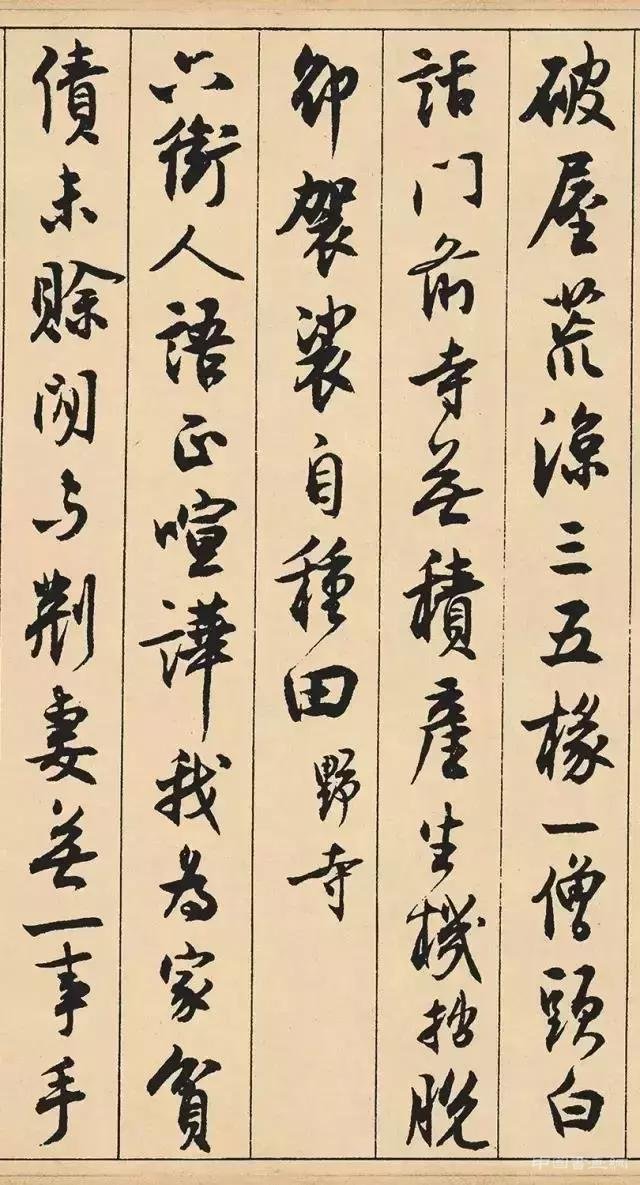 破屋荒涼三五椽一僧頭白
話門前寺無積產生機拙脫
卻袈裟自種田野寺
六街人語正喧譁我為家貧
債未賒閒與荊妻無一事手
中国書画網